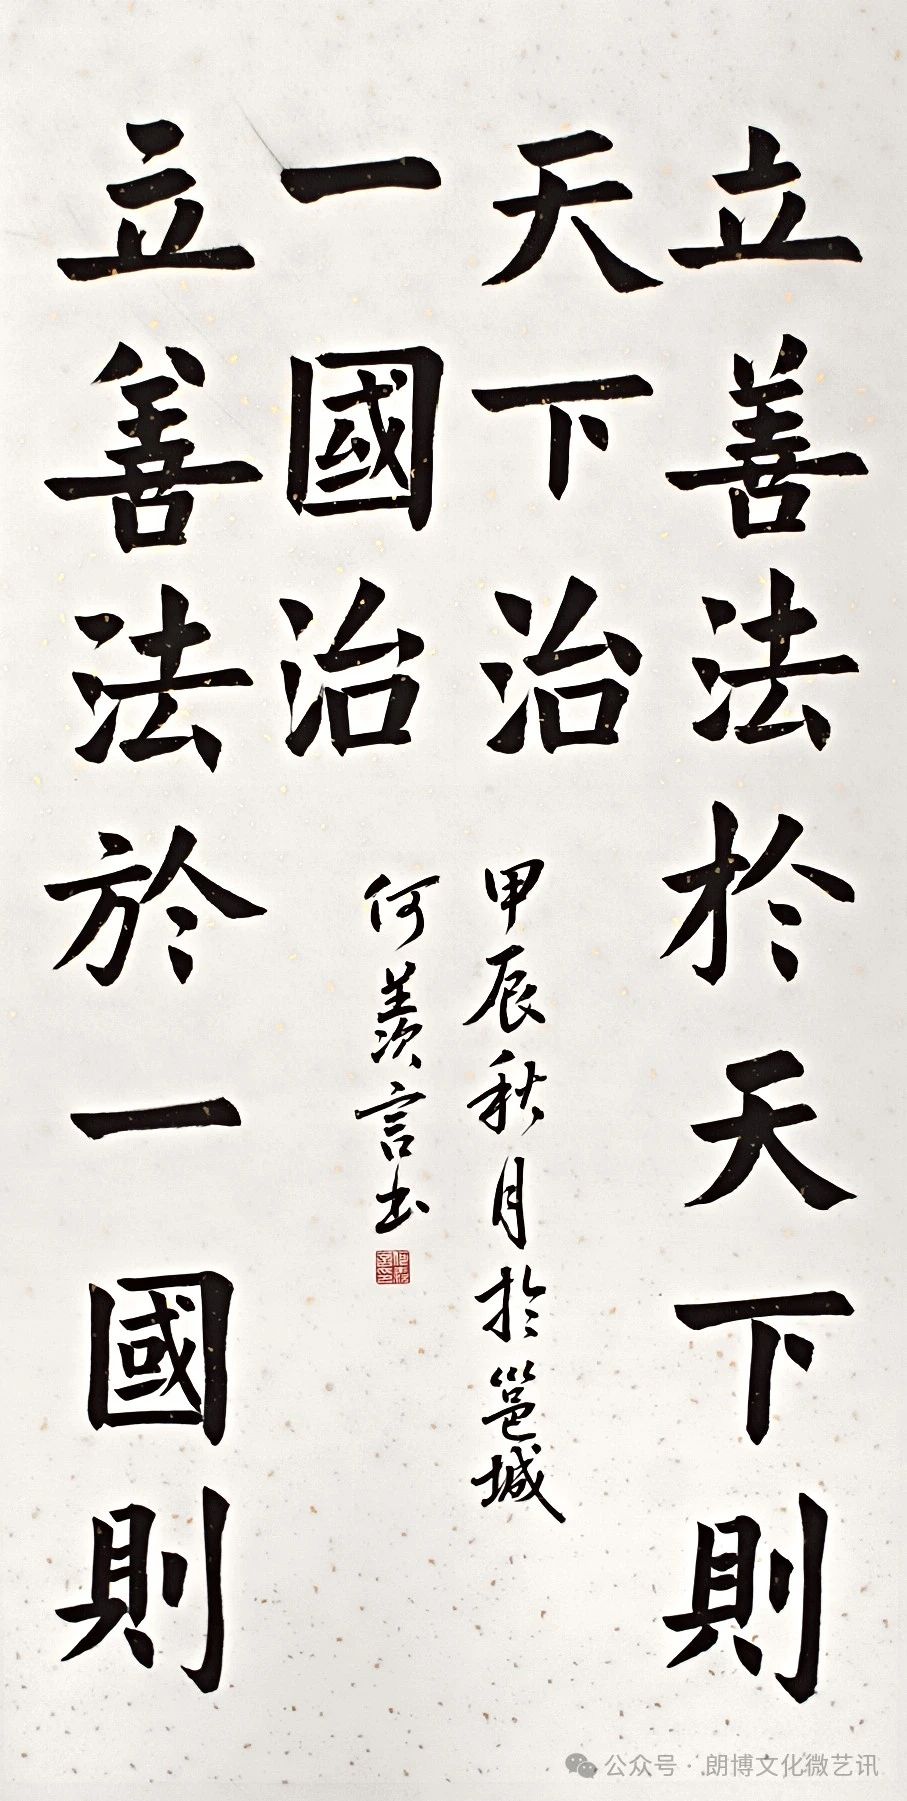 立善法於天下則
天下治
立善法於一國則
一國治
甲辰秋月於邕城
何羨言书
公众号 · 朗博文化微艺讯